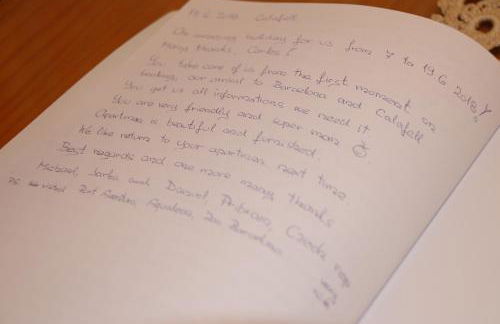 19.6.2018 Calafell
An amazing holiday for us from 7 to 19.6 2018,
Many thanks, Carlos!
You take care of us from the first moment on
booking, our arrival to Barcelona and Calafell.
You get us all informations we need it.
You are very friendly and super man ☺.
Apartman is beautiful and furnished.
We like return to your apartman next time.
Best regards and one more many thanks
Michael, Sarka and Daniel, Pribram, Czech rep
PS we visited Port Aventura, Aqualand, Zoo Barcelona